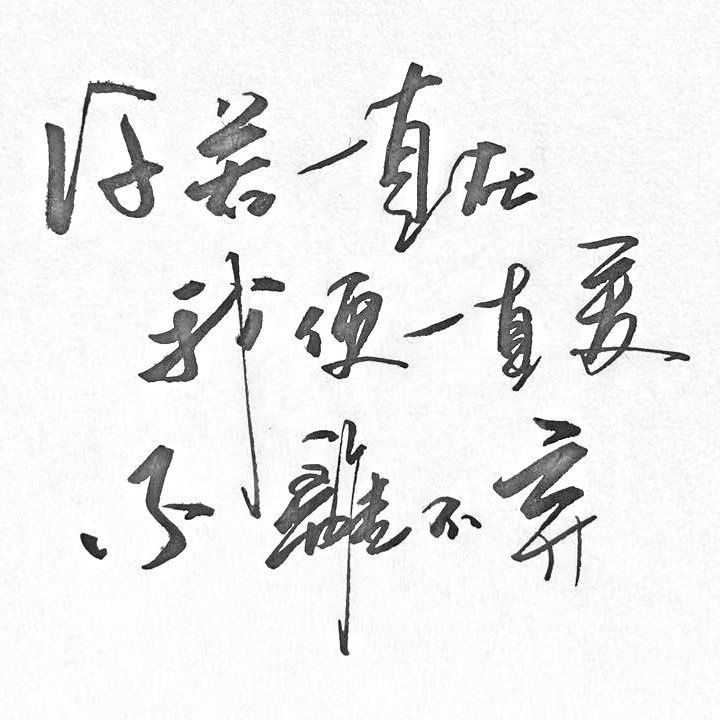 你若一直在
我便一直爱
不離不弃